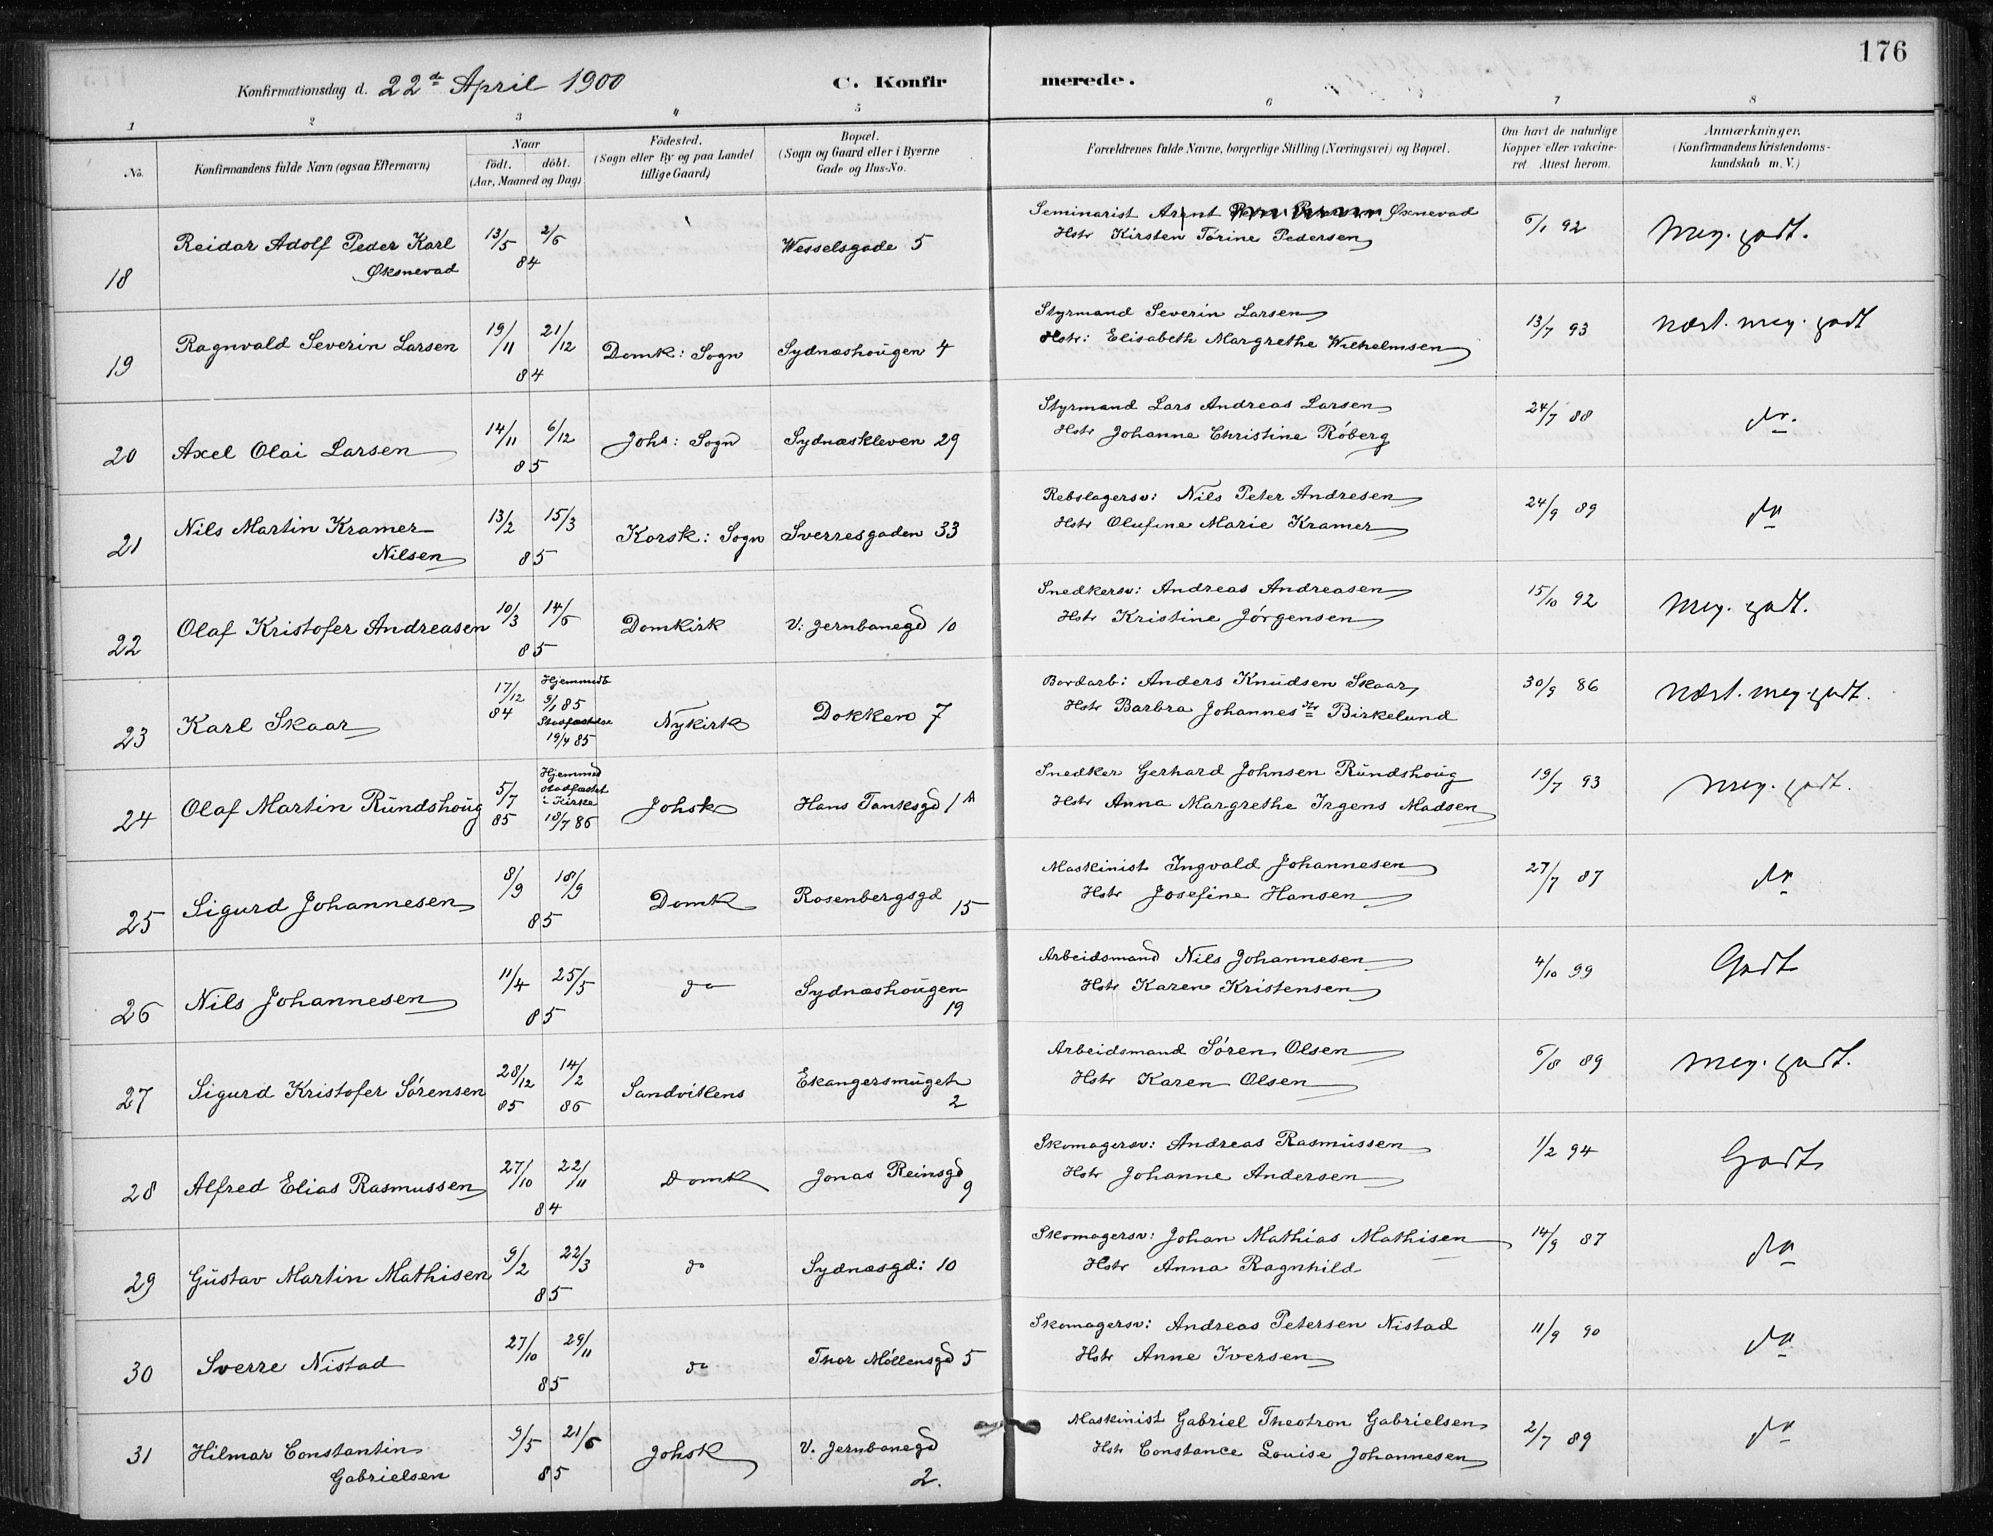 176
Konfirmationsdag d. 22de April 1900 C. Konfirmerede.
1 2 3 4 5 6 7 8
No.
Konfirmandens fulde Navn (ogsaa Efternavn)
Naar
födt. döbt.
(Aar, Maaned og Dag)
Födested.
(Sogn eller By og paa Landet
tillige Gaard)
Bopæl.
(Sogn og Gaard eller i Byerne
Gade og Hus-No.
Forældrenes fulde Navne, borgerlige Stilling (Næringsvei) og Bopæl.
Om havt de naturlige
Kopper eller vakcine-
ret Attest herom.
Anmærkninger.
(Konfirmandens Kristendoms-
kundskab m. V.)
18 Reidar Adolf Peder Karl
Øksnevad
13/5 2/6
84
Wesselsgade 5
Seminarist Arent Øxnevad
Hstr Kirsten Torine Pedersen
6/1 92
Meg. godt.
19 Ragnvald Severin Larsen
19/11 21/12
84
Domk: Sogn
Sydnæshougen 4
Styrmand Severin Larsen
Hstr: Elisabeth Margrethe Wilhelmsen
13/7 93
Næst. meg. godt
20 Axel Olai Larsen
14/11 6/12
85
Johs: Sogn
Sydnæskleven 29
Styrmand Lars Andreas Larsen
Hstr Johanne Christine Röberg
24/7 88
do.
21 Nils Martin Kramer
Nilsen
13/2 15/3
85
Korsk: Sogn
Sverresgaden 33
Rebslagersv: Nils Peter Andresen
Hstr Olufine Marie Kramer
24/9 89
do
22 Olaf Kristofer Andreasen
10/3 14/6
85
Domkirk
V: Jernbanegd 10
Snedkersv: Andreas Andreasen
Hstr Kristine Jørgensen
15/10 92
Meg. godt.
23 Karl Skaar
17/12
84
Hjemmedb
9/1 85
19/4 85
Nykirk
Dokken 7
Bordarb: Anders Knudsen Skaar
Hstr Barbra Johannesdtr Birkelund
30/9 86
Næst. meg. godt.
24 Olaf Martin Rundshoug
5/7
85
Hjemmed
Stadfæstet
i Kirke
18/7 86
Johsk
Hans Tanksgd 1 A
Snedker Gerhard Johnsen Rundshoug
Hstr Anna Margrethe Irgens Madsen
19/7 93
Meg. godt.
25 Sigurd Johannesen
8/9 18/9
85
Domk
Rosenbergsgd
15
Maskinist Ingvald Johannesen
Hstr Josefine Hansen
27/7 87
do
26 Nils Johannesen
11/4 25/5
85
do
Sydnæshougen
19
Arbeidsmand Nils Johannesen
Hstr Karen Kristensen
4/10 99
Godt
27 Sigurd Kristofer Sørensen
28/12 14/2
85 86
Sandvikens
Ekangersmuget
2
Arbeidsmand Søren Olsen
Hstr Karen Olsen
6/8 89
Meg. godt.
28 Alfred Elias Rasmussen
27/10 22/11
84
Domk
Jonas Reinsgd
9
Skomagersv: Andreas Rasmussen
Hstr Johanne Andersen
1/2 94
Godt
29 Gustav Martin Mathisen
9/2 22/3
85
do
Sydnæsgd: 10
Skomagersv: Johan Mathias Mathisen
Hstr Anna Ragnhild
14/9 87
do
30 Sverre Nistad
27/10 29/11
85
do
Thor Möllensgd 5
Skomagersv: Andreas Petersen Nistad
Hstr Anne Iversen
11/9 90
do
31 Hilmar Constantin
Gabrielsen
9/5 21/6
85
Johsk
V. Jernbanegd
2.
Maskinist Gabriel Theotron Gabrielsen
Hstr Constance Louise Johannesen
2/7 89
do